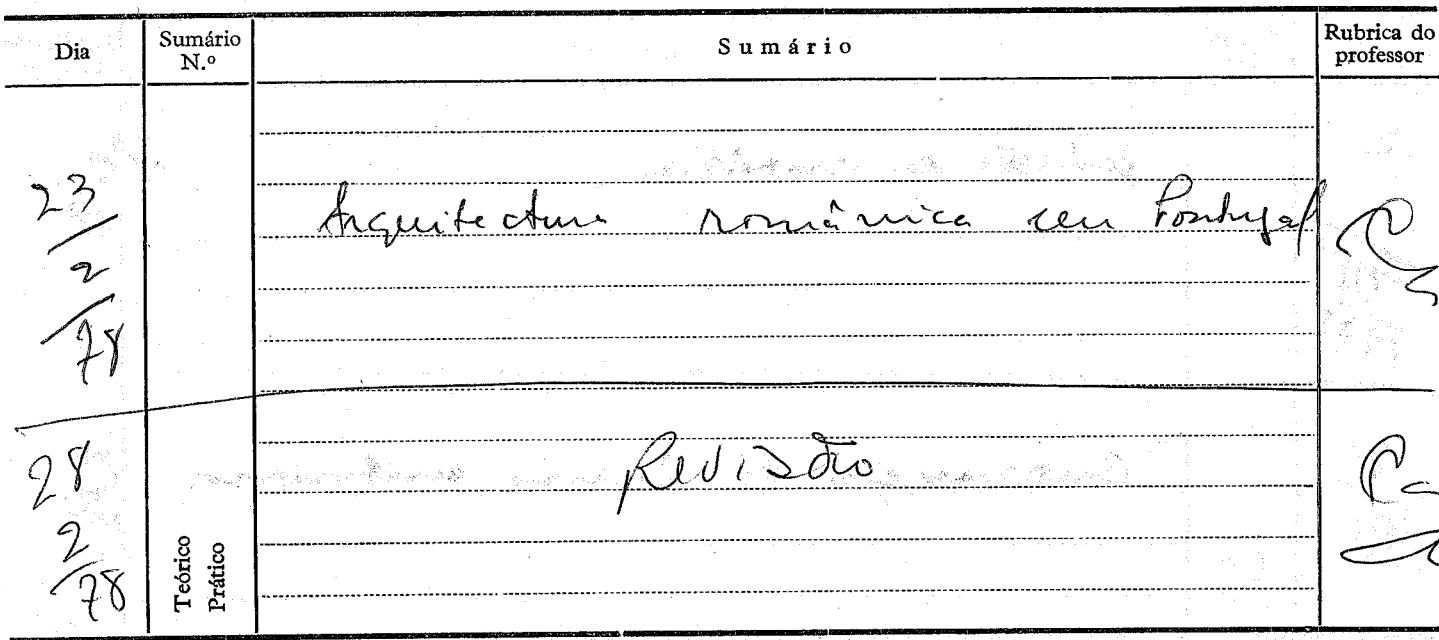 Dia Sumário N.º Sumário Rubrica do professor
23/2/78 Arquitectura românica em Portugal
28/2/78 Revisão
Teórico
Prático